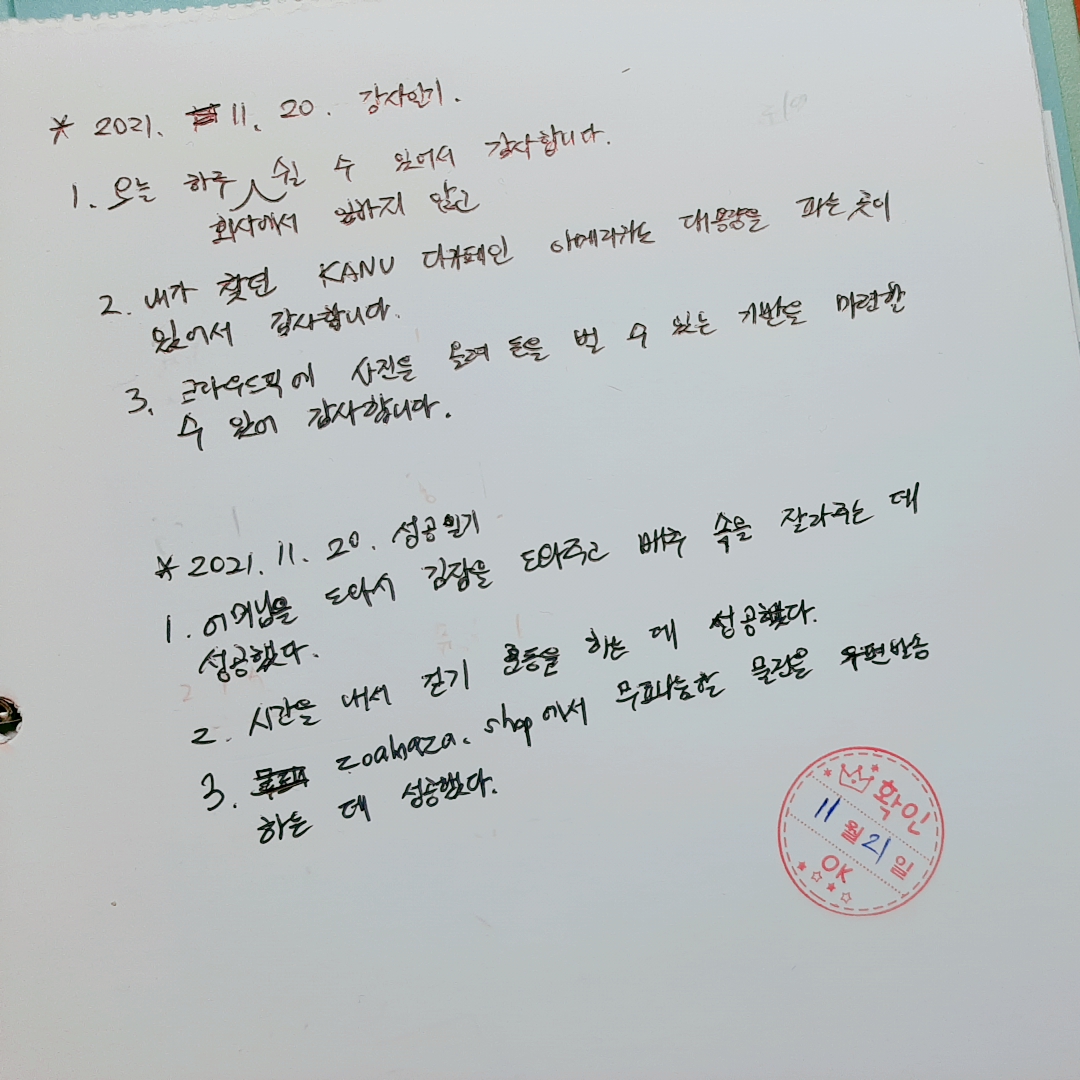 * 2021. 11. 20. 감사일기.
1. 오늘 하루 쉴 수 있어서 감사합니다.
회사에서 일하지 않고
2. 내가 찾던 KANU 디카페인 아메리카노 대용량을 파는 곳이
있어서 감사합니다.
3. 크라우드픽에 사진을 올려 돈을 벌 수 있는 기반을 마련할
수 있어 감사합니다.
* 2021. 11. 20. 성공일기
1. 어머님을 도와서 김장을 도와주고 배추 속을 잘라주는 데
성공했다.
2. 시간을 내서 걷기 운동을 하는 데 성공했다.
3. zoahaza.shop에서 무료나눔할 물건을 우편발송
하는 데 성공했다.
확인
11월 21일
OK